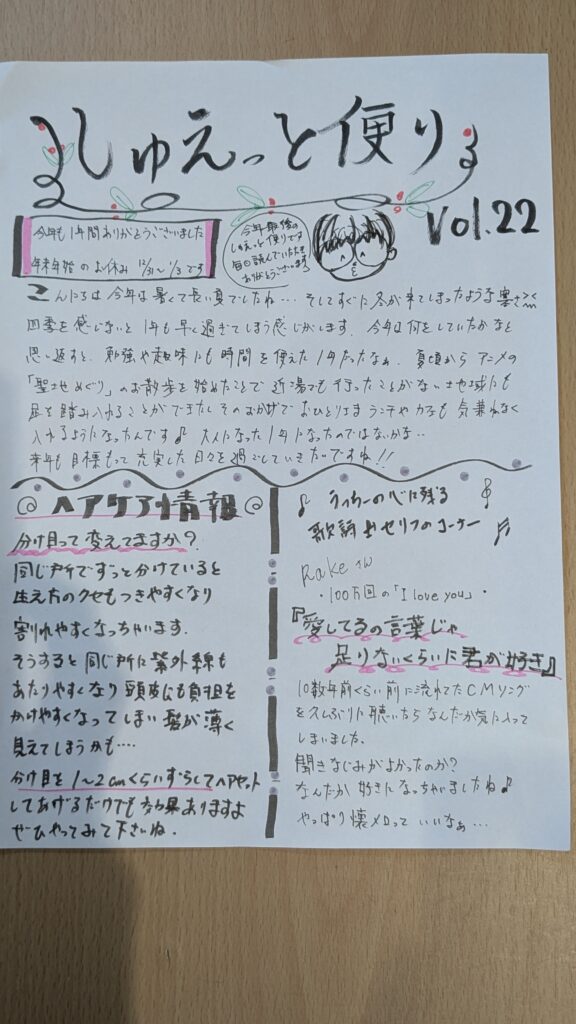 しゅえっと便り
Vol.22
今年も1年間ありがとうございました
年末年始のお休み 12/31〜1/3です
今年最後の
しゅえっと便りです
毎回読んでいただき
ありがとうございます
こんにちは 今年は暑くて長い夏でしたね… そしてすぐに冬が来てしまったような寒さ
四季を感じないと1年も早く過ぎてしまう感じがします. 今年は何をしていたかなと
思い返すと、勉強や趣味にも時間を使えた1年だったなぁ. 夏頃からアニメの
「聖地めぐり」のお散歩を始めたことで近場でも行ったことがない地域にも
足を踏み入れることができました そのおかげでおひとりさまランチやカフェも気兼ねなく
入れるようになったんです♪ 大人になった1年になったのではないかな..
来年も目標もって充実した日々を過ごしていきたいですね!!
◎ヘアケア情報◎
分け目って変えてますか?
同じ所でずっと分けていると
生え方のクセもつきやすくなり
割れやすくなっちゃいます.
そうすると同じ所に紫外線も
あたりやすくなり頭皮にも負担を
かけやすくなってしまい髪が薄く
見えてしまうかも….
分け目を1〜2cmくらいずらしてヘアセット
してあげるだけでも効果ありますよ
ぜひやってみて下さいね.
♪ うっちーの心に残る
歌詞 セリフのコーナー
Rake
・100万回の「I love you」・
『愛してるの言葉じゃ
足りないくらいに君が好き』
10数年前くらい前に流れてたCMソング
を久しぶりに聴いたらなんだか気に入って
しまいました.
聞きなじみがよかったのか?
なんだか好きになっちゃいましたね♪
やっぱり懐メロっていいなぁ…